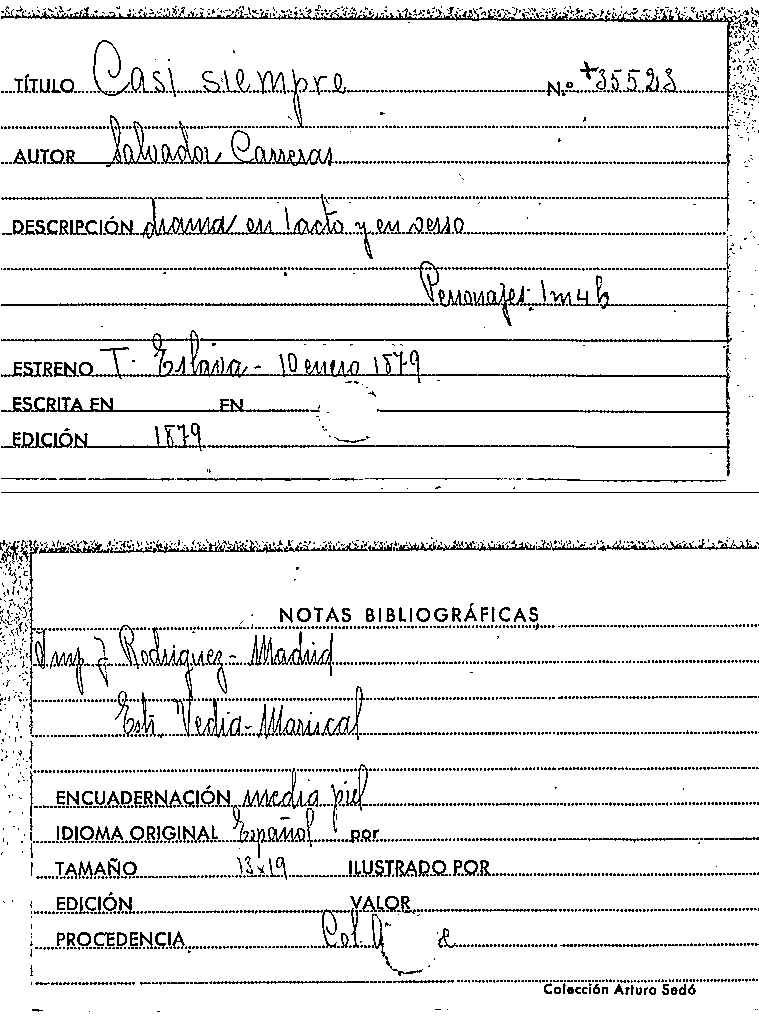 TÍTULO Casi siempre N.º +35523
AUTOR Salvador Carreras
DESCRIPCIÓN drama en 1 acto y en verso
Personajes: 1m4h
ESTRENO T. Eslava - 10 enero 1879
ESCRITA EN EN
EDICIÓN 1879
NOTAS BIBLIOGRÁFICAS
Imp J Rodriguez - Madrid
Estr. Vedia - Mariscal
ENCUADERNACIÓN media piel
IDIOMA ORIGINAL Español por
TAMAÑO 13x19 ILUSTRADO POR
EDICIÓN VALOR
PROCEDENCIA Col.
Colección Arturo Sedó